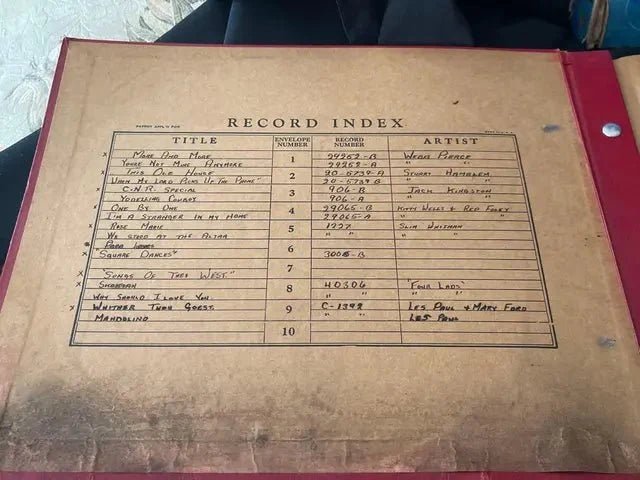 RECORD INDEX
PATENT APPL'D FOR
TITLE ENVELOPE NUMBER RECORD NUMBER ARTIST
x MORE AND MORE 1 29252-B WEBB PIERCE
YOU'RE NOT MINE ANYMORE 29252-A " "
x THIS OLE HOUSE 2 20-5739-A STUART HAMBLEN
WHEN MY LORD PICKS UP THE PHONE" 20-5739B " "
x C.N.R. SPECIAL 3 906-B JACK KINGSTON
YODELLING COWBOY 906-A " "
x ONE BY ONE 4 29065-B KITTY WELLS & RED FOLEY
I'M A STRANGER IN MY HOME 29065-A " "
x ROSE MARIE 5 1927 SLIM WHITMAN
WE STOOD AT THE ALTAR " " " "
6
x SQUARE DANCES" 3005-B
7
x "SONGS OF THE WEST."
x SHOBOOAH 8 40306 "FOUR LADS"
WHY SHOULD I LOVE YOU. " " " "
x WHITHER THOU GOEST. 9 C-1392 LES PAUL & MARY FORD
MANDOLINO " " LES PAUL
10